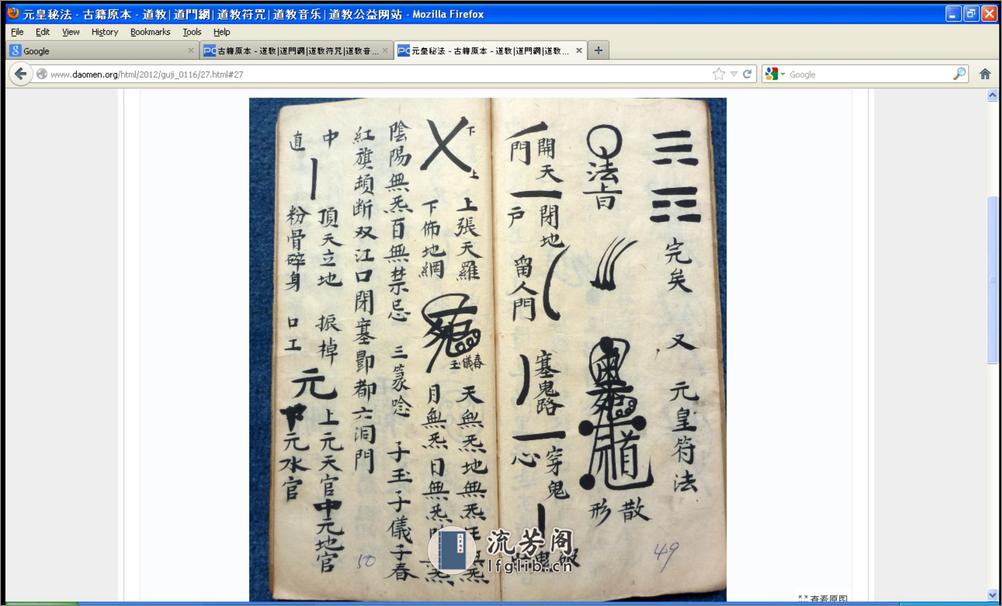 元皇秘法 - 古籍原本 - 道教|道門網|道教符咒|道教音乐|道教公益网站 - Mozilla Firefox
File Edit View History Bookmarks Tools Help
Google
古籍原本 - 道教|道門網|道教符咒|道教音...
元皇秘法 - 古籍原本 - 道教|道門網|道...
www.daomen.org/html/2012/guji_0116/27.html#27
Google
完矣 又 元皇符法
法旨
散
形
開天
門
閉地
户
留人門
塞鬼路
穿鬼
心
49
下
上
上張天羅
下佈地網
春
儀
玉
天無炁地無炁
月無炁日無炁
陰陽無炁百無禁忌 三篆唸 子玉子儀子春
紅旗頭断双江口閉塞酆都六洞門
中
直
頂天立地 振棹
粉骨碎身 口工
元
上元天官中元地官
下元水官
50
流芳阁
lfglib.cn
查看原图